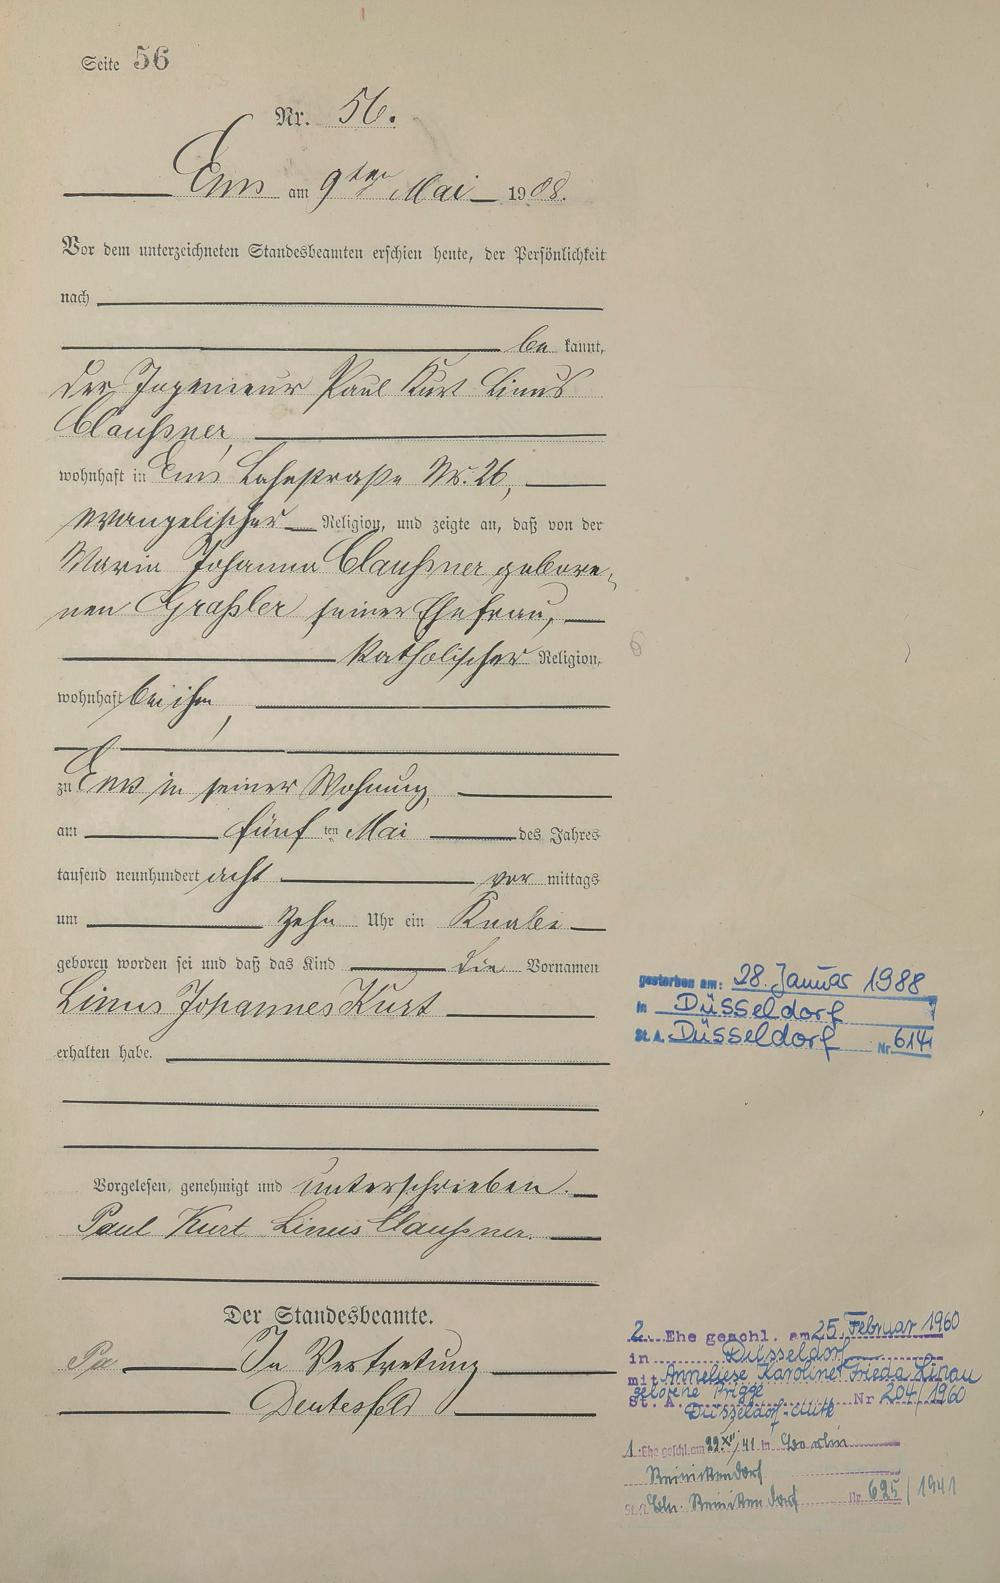 Seite 56
Nr. 56.
Ems am 9ten Mai 1908.
Vor dem unterzeichneten Standesbeamten erschien heute, der Persönlichkeit
nach
be kannt,
der Ingenieur Paul Kurt Linus
Claußner,
wohnhaft in Ems Lahnstraße Nr. 26,
evangelischer Religion, und zeigte an, daß von der
Maria Johanna Claußner gebore-
nen Graßler seiner Ehefrau,
katholischer Religion,
wohnhaft bei ihm,
zu Ems in seiner Wohnung,
am fünf ten Mai des Jahres
tausend neunhundert acht vor mittags
um zehn Uhr ein Knabe
geboren worden sei und daß das Kind die Vornamen
Linus Johannes Kurt
erhalten habe.
Vorgelesen, genehmigt und unterschrieben.
Paul Kurt Linus Claußner.
Der Standesbeamte.
In Vertretung
gestorben am: 28. Januar 1988
in Düsseldorf
St. A. Düsseldorf Nr. 614
2. Ehe geschl. am 25. Februar 1960
in Düsseldorf
mit Anneliese Karoline Frieda Linau
geborene Prigge
St. A. Düsseldorf-Mitte Nr 204/1960
1. Ehe geschl. am 22.XII/41 in Berlin
Reinickendorf
St. A. Bln. Reinickendorf Nr. 625/1941